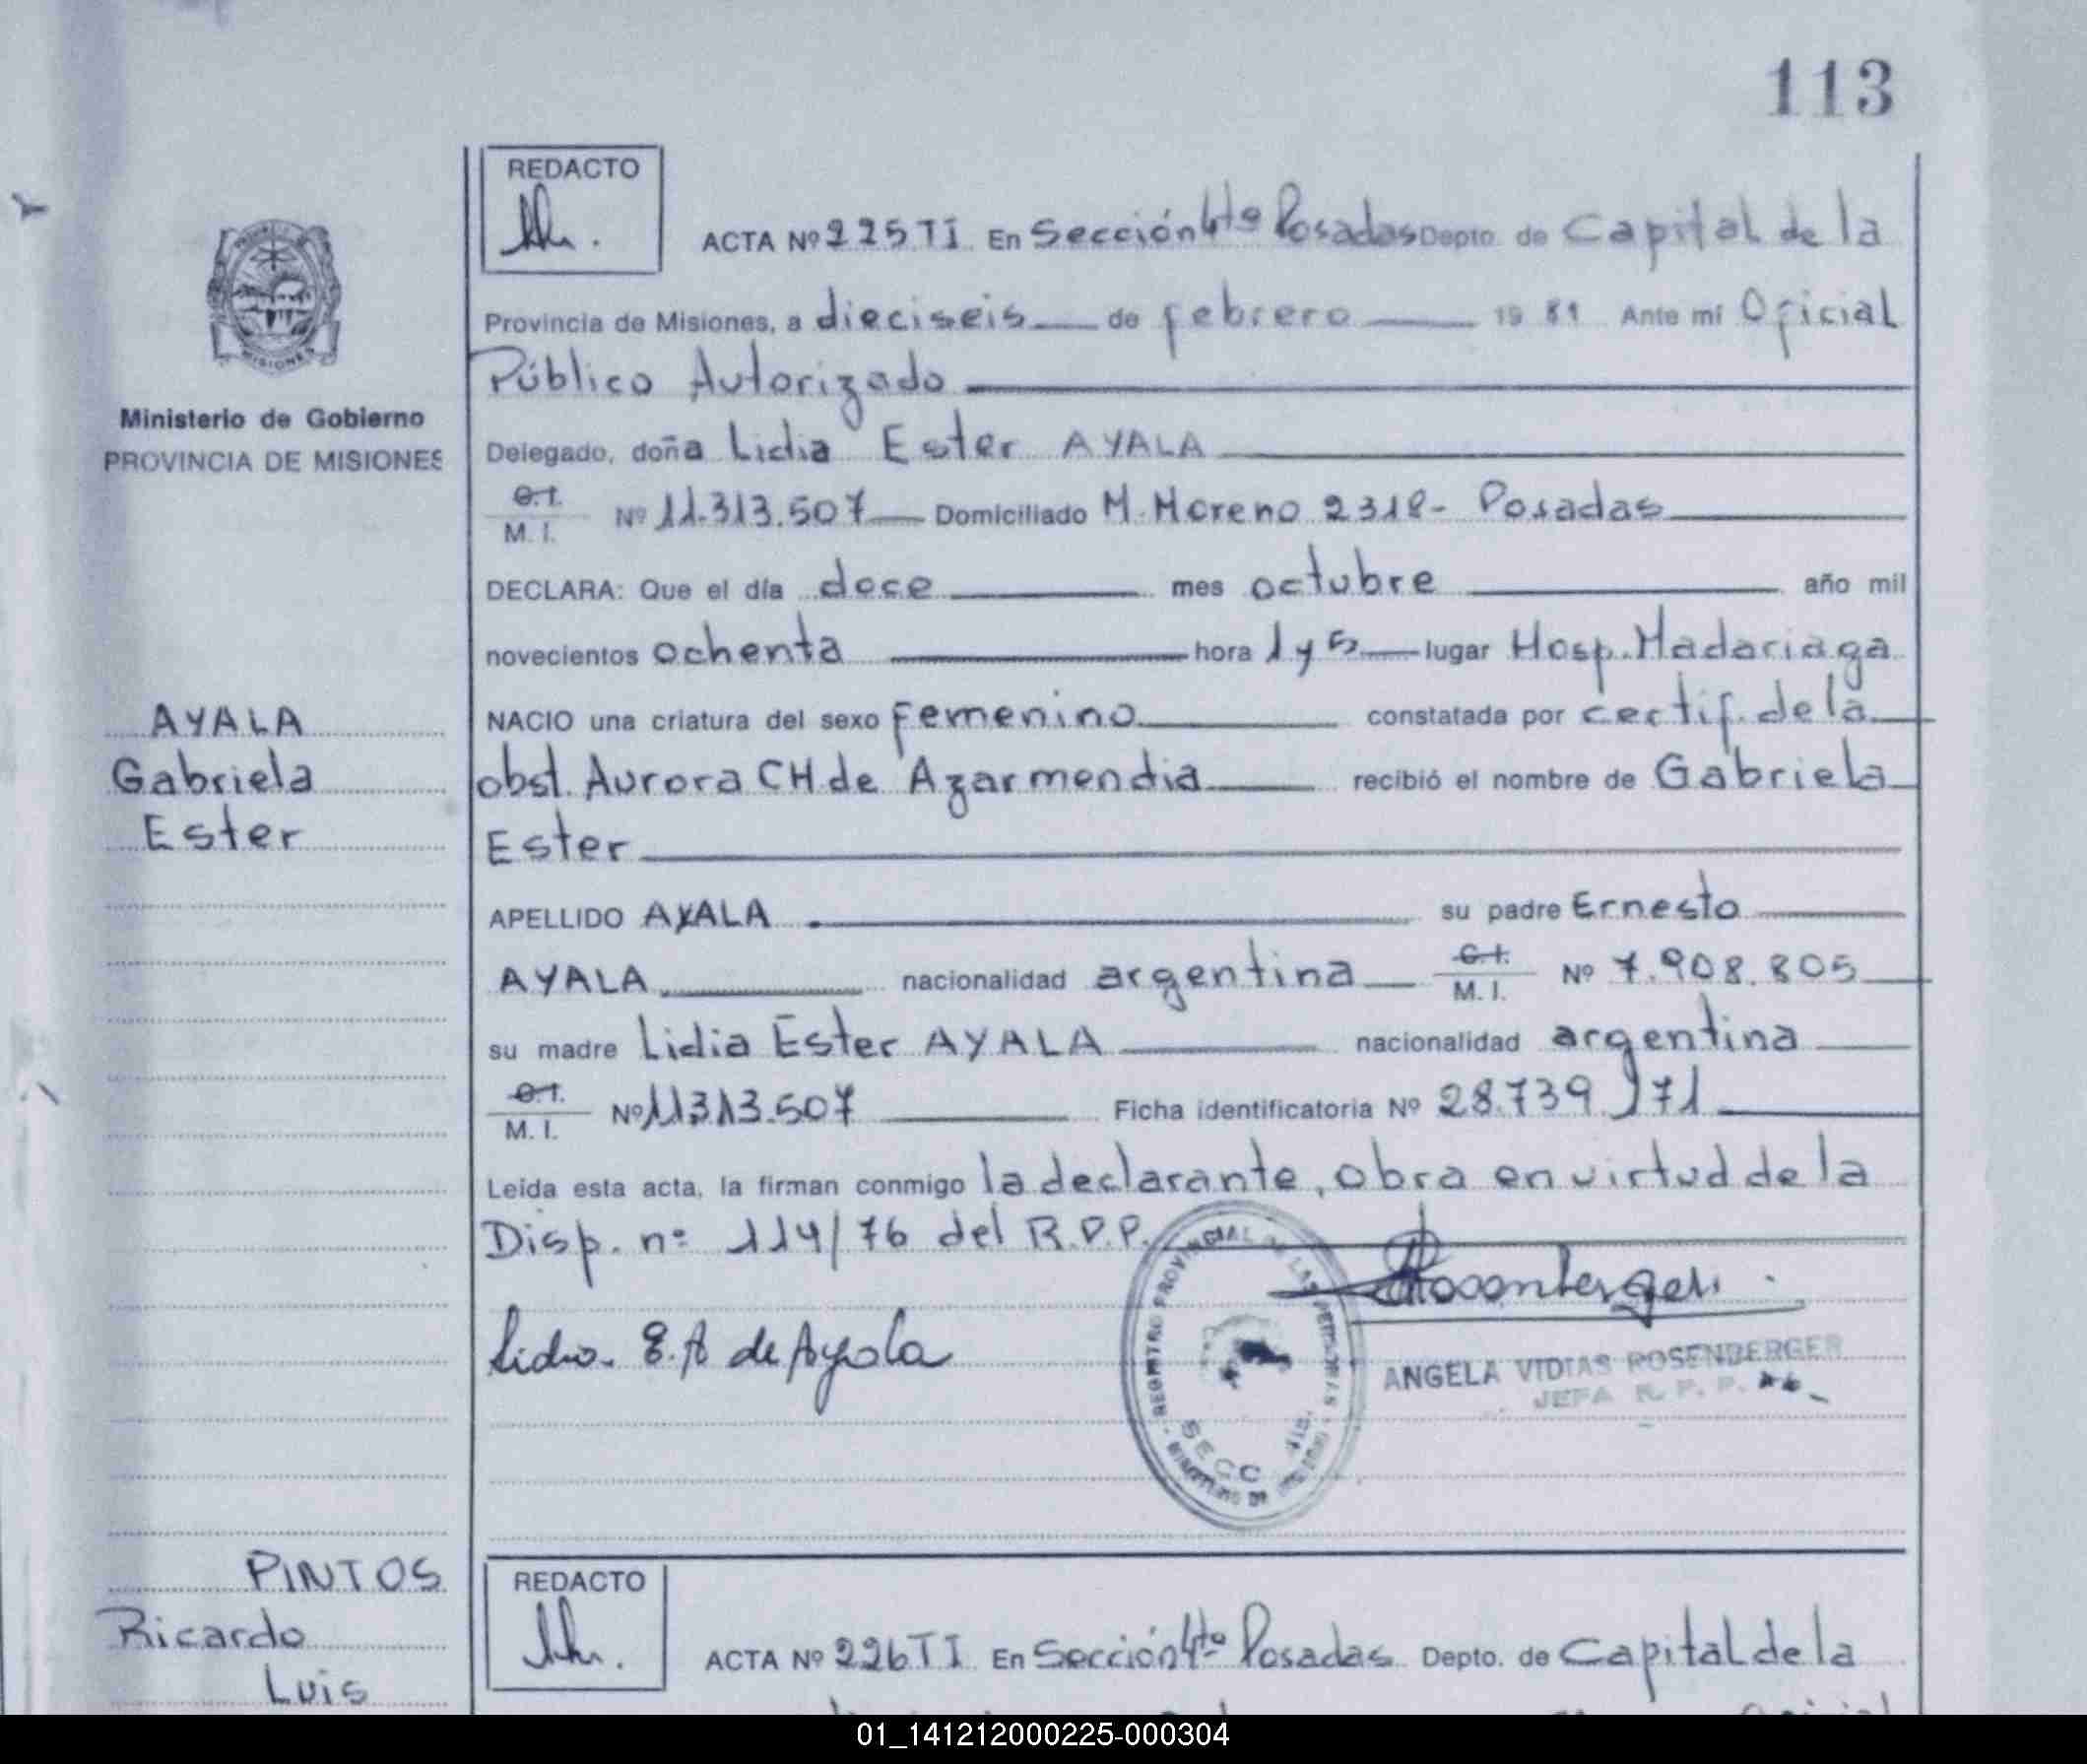 113
REDACTO
ACTA Nº 225 TI En Sección 4tº Posadas Depto. de Capital de la
Provincia de Misiones, a dieciseis de febrero 19 81 Ante mí Oficial
Público Autorizado
Ministerio de Gobierno
PROVINCIA DE MISIONES
Delegado, doña Lidia Ester AYALA
C.I.
M. I. Nº 11.313.507 Domiciliado M. Moreno 2318- Posadas
DECLARA: Que el día doce mes octubre año mil
novecientos ochenta hora 1 y 5 lugar Hosp. Madariaga
AYALA
Gabriela
Ester
NACIO una criatura del sexo femenino constatada por certif. de la
obst. Aurora CH. de Azarmendia recibió el nombre de Gabriela
Ester
APELLIDO AYALA su padre Ernesto
AYALA nacionalidad argentina C.I. M. I. Nº 7.908.805
su madre Lidia Ester AYALA nacionalidad argentina
C.I.
M. I. Nº 11313.507 Ficha identificatoria Nº 28.739 J 71
Leída esta acta, la firman conmigo la declarante, obra en virtud de la
Disp. nº 114/76 del R.P.P.
Lidia E. A de Ayala
ANGELA VIDIAS ROSENBERGER
JEFA R. P. P.
REGISTRO PROVINCIAL DE LAS PERSONAS
PINTOS
Ricardo
Luis
REDACTO
ACTA Nº 226 TI En Sección 4tº Posadas Depto. de Capital de la
01_141212000225-000304